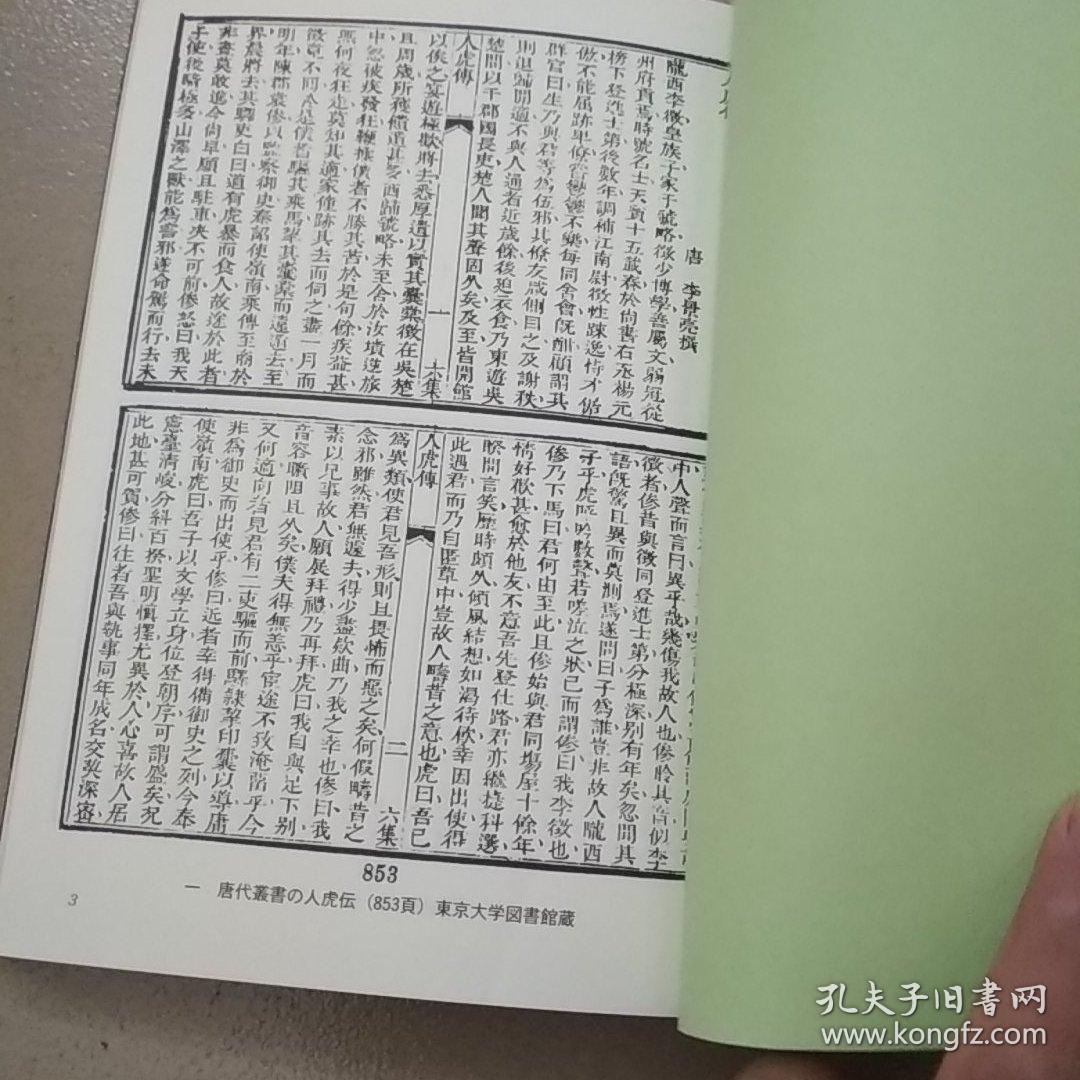 唐　李景亮撰
隴西李徵皇族子家于虢略徵少博學善屬文弱冠從
州府貢焉時號名士天寶十五載春於尚書右丞楊元
榜下登進士第後數年調補江南尉徵性踈逸恃才倨
傲不能屈跡卑僚嘗鬱鬱不樂每同舍會旣酣顧謂其
群官曰生乃與君等爲伍邪其僚友咸側目之及謝秩
則退歸閒適不與人通者近歲餘後迫衣食乃東遊吳
楚間以干郡國長吏楚人聞其聲固久矣及至皆開館
人虎傳
一
六集
以俟之宴遊極歡將去悉厚遺以實其囊橐徵在吳楚
且周歲所獲饋遺甚多西歸虢略未至舍於汝墳逆旅
中忽被疾發狂鞭捶僕者不勝其苦於是旬餘疾益甚
無何夜狂走莫知其適家僮跡其去而伺之盡一月而
徵竟不囘於是僕者驅其乘馬挈其囊橐而遠遁去至
明年陳郡袁傪以監察御史奉詔使嶺南乘傳至商於
界晨將去其驛吏白曰道有虎暴而食人故途於此者
非晝莫敢進今尚早願且駐車決不可前傪怒曰我天
子使後騎極多山澤之獸能爲害邪遂命駕而行去未
中人聲而言曰異乎哉幾傷我故人也傪聆其音似李
徵者傪昔與徵同登進士第分極深別有年矣忽聞其
語旣驚且異而莫測焉遂問曰子爲誰豈非故人隴西
子乎虎呼吟數聲若嗟泣之狀已而謂傪曰我李徵也
傪乃下馬曰君何由至此且傪始與君同場屋十餘年
情好歡甚愈於他友不意吾先登仕路君亦繼捷科選
睽間言笑歷時頗久傾風結想如渴待飲幸因出使得
此遇君而乃自匿草中豈故人疇昔之意也虎曰吾已
人虎傳
二
六集
爲異類使君見吾形則且畏怖而惡之矣何假疇昔之
念邪雖然君無遽去得少盡欸曲乃我之幸也傪曰我
素以兄事故人願展拜禮乃再拜虎曰我自與足下別
音容曠阻且久矣僕夫得無恙乎宦途不致淹留乎今
又何適向者見君有二吏驅而前驛隸挈印囊以導庸
非爲御史而出使乎傪曰近者幸得備御史之列今奉
使嶺南虎曰吾子以文學立身位登朝序可謂盛矣况
憲臺清峻分糾百揆聖明愼擇尤異於人心喜故人居
此地甚可賀傪曰往者吾與執事同年成名交契深密
853
一　唐代叢書の人虎伝（853頁）東京大学図書館蔵
3
孔夫子旧书网
www.kongfz.com